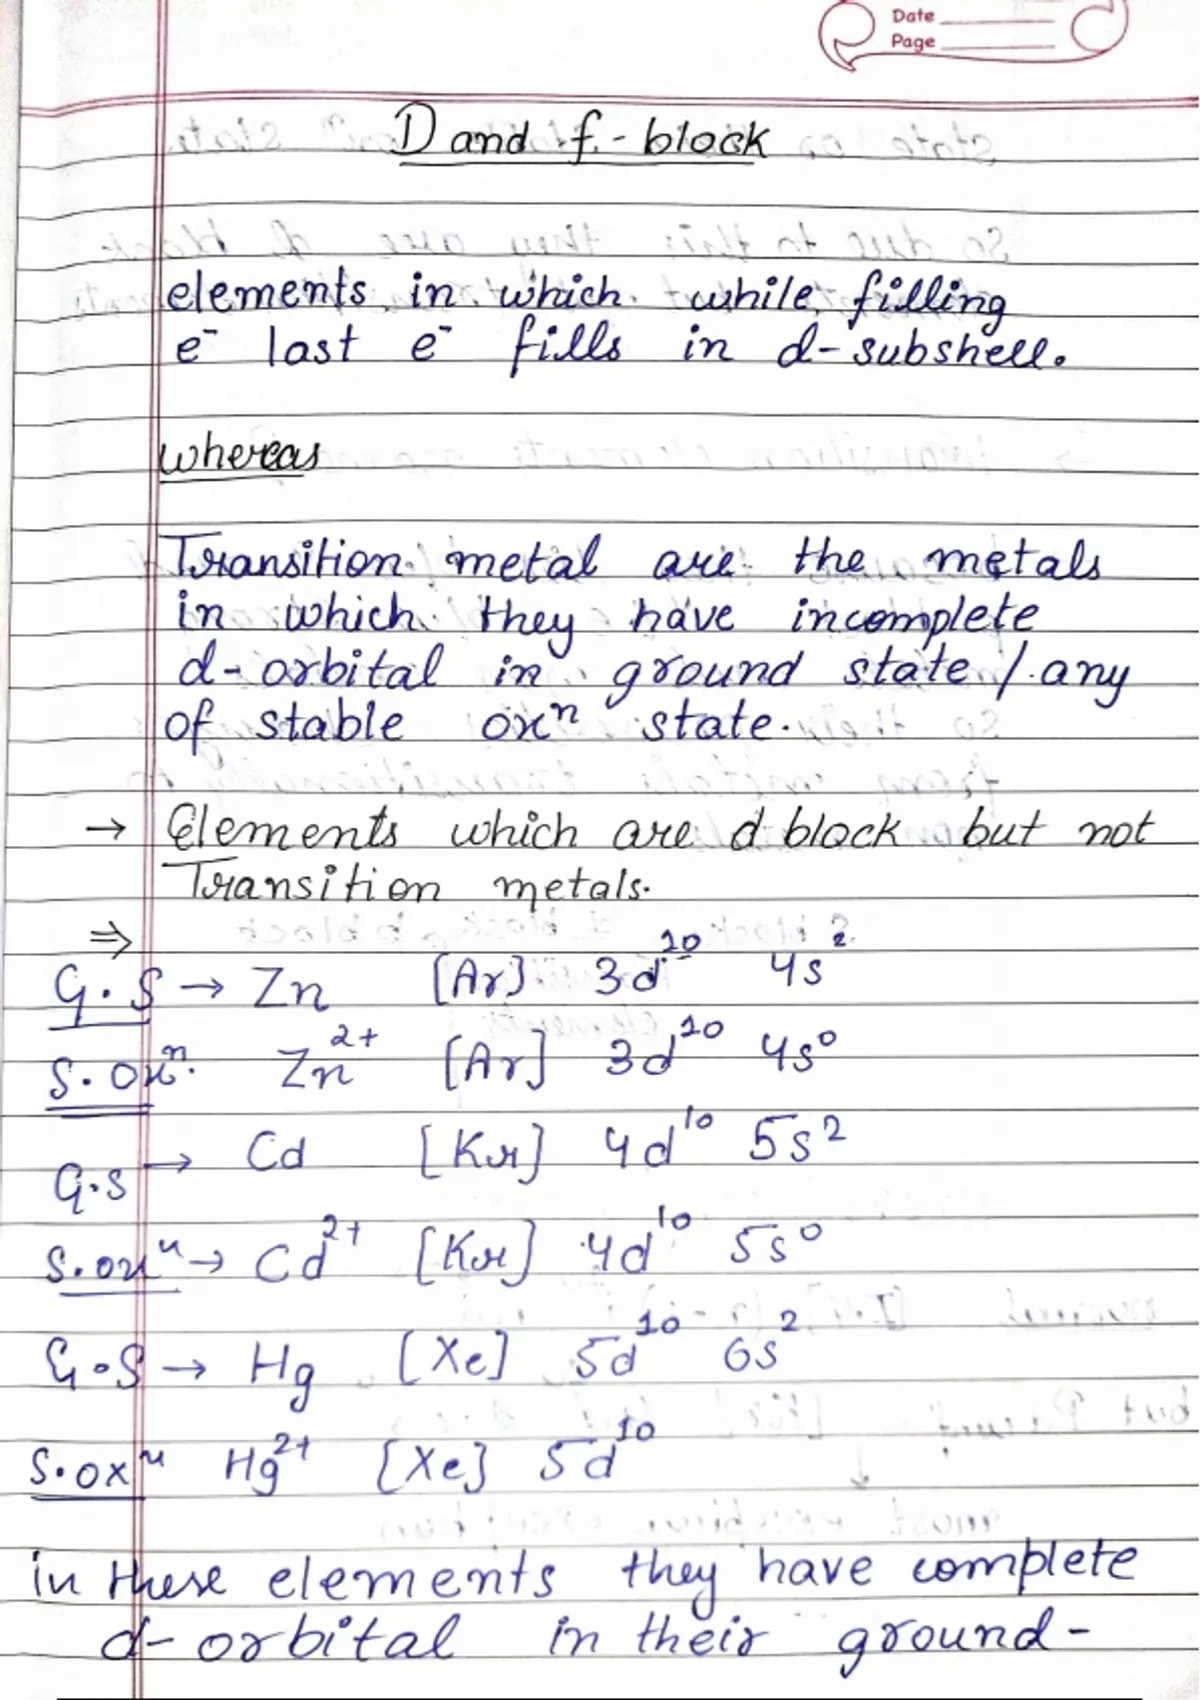 Date
Page
D and f - block
elements in which while filling
e⁻ last e⁻ fills in d-subshell.
whereas
Transition metal are the metals
in which they have incomplete
d-orbital in ground state / any
of stable oxⁿ state.
→ Elements which are d block but not
Transition metals.
⇒
G.S → Zn [Ar] 3d¹⁰ 4s²
S.oxⁿ. Zn²⁺ [Ar] 3d¹⁰ 4s⁰
G.S → Cd [Kr] 4d¹⁰ 5s²
S.oxⁿ → Cd²⁺ [Kr] 4d¹⁰ 5s⁰
G.S → Hg [Xe] 5d¹⁰ 6s²
S.oxⁿ Hg²⁺ [Xe] 5d¹⁰
in these elements they have complete
d-orbital in their ground-